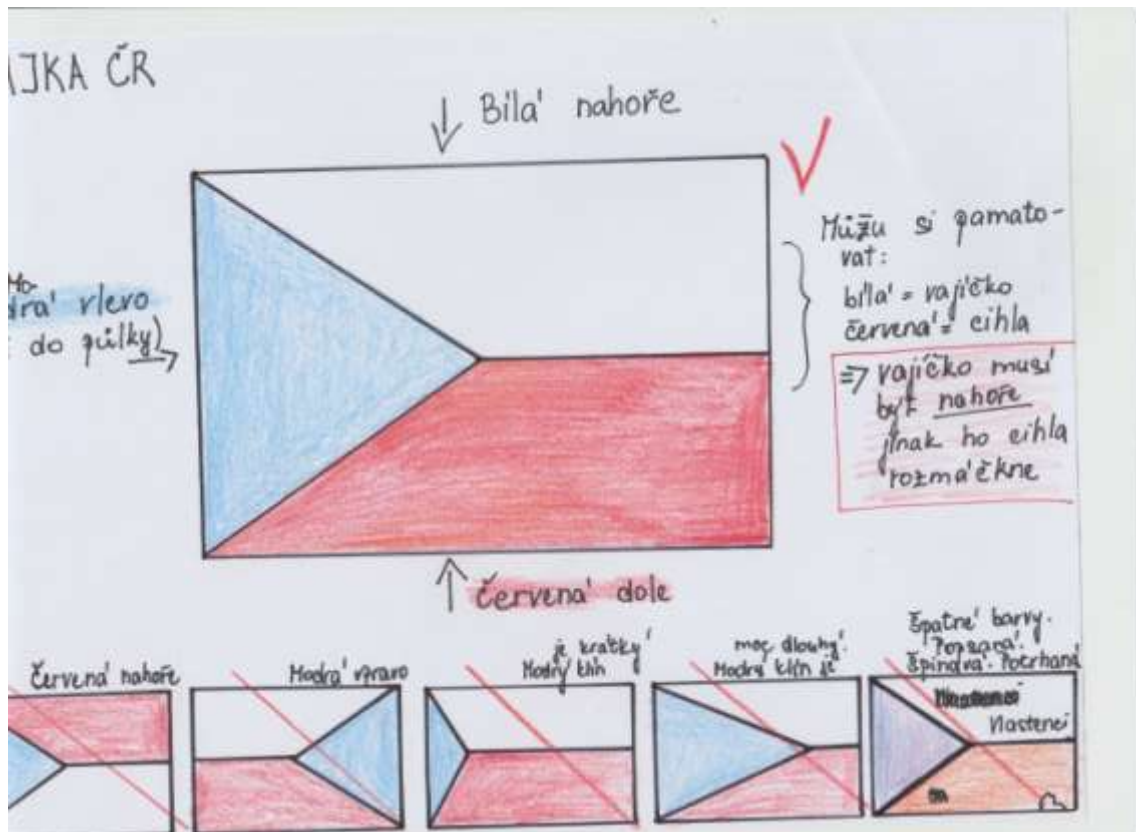 AJKA ČR
↓ Bílá nahoře
Mo-
drá vlevo
do půlky) →
Můžu si pamato-
vat:
bílá = vajíčko
červená = cihla
=> vajíčko musí
být nahoře
jinak ho cihla
rozmáčkne
↑ Červená dole
Červená nahoře
Modrá vpravo
je krátký
Modrý klín
moc dlouhý.
Modrý klín je
Špatné barvy.
Popsaná.
Špinavá. Potrhaná
Nastenci